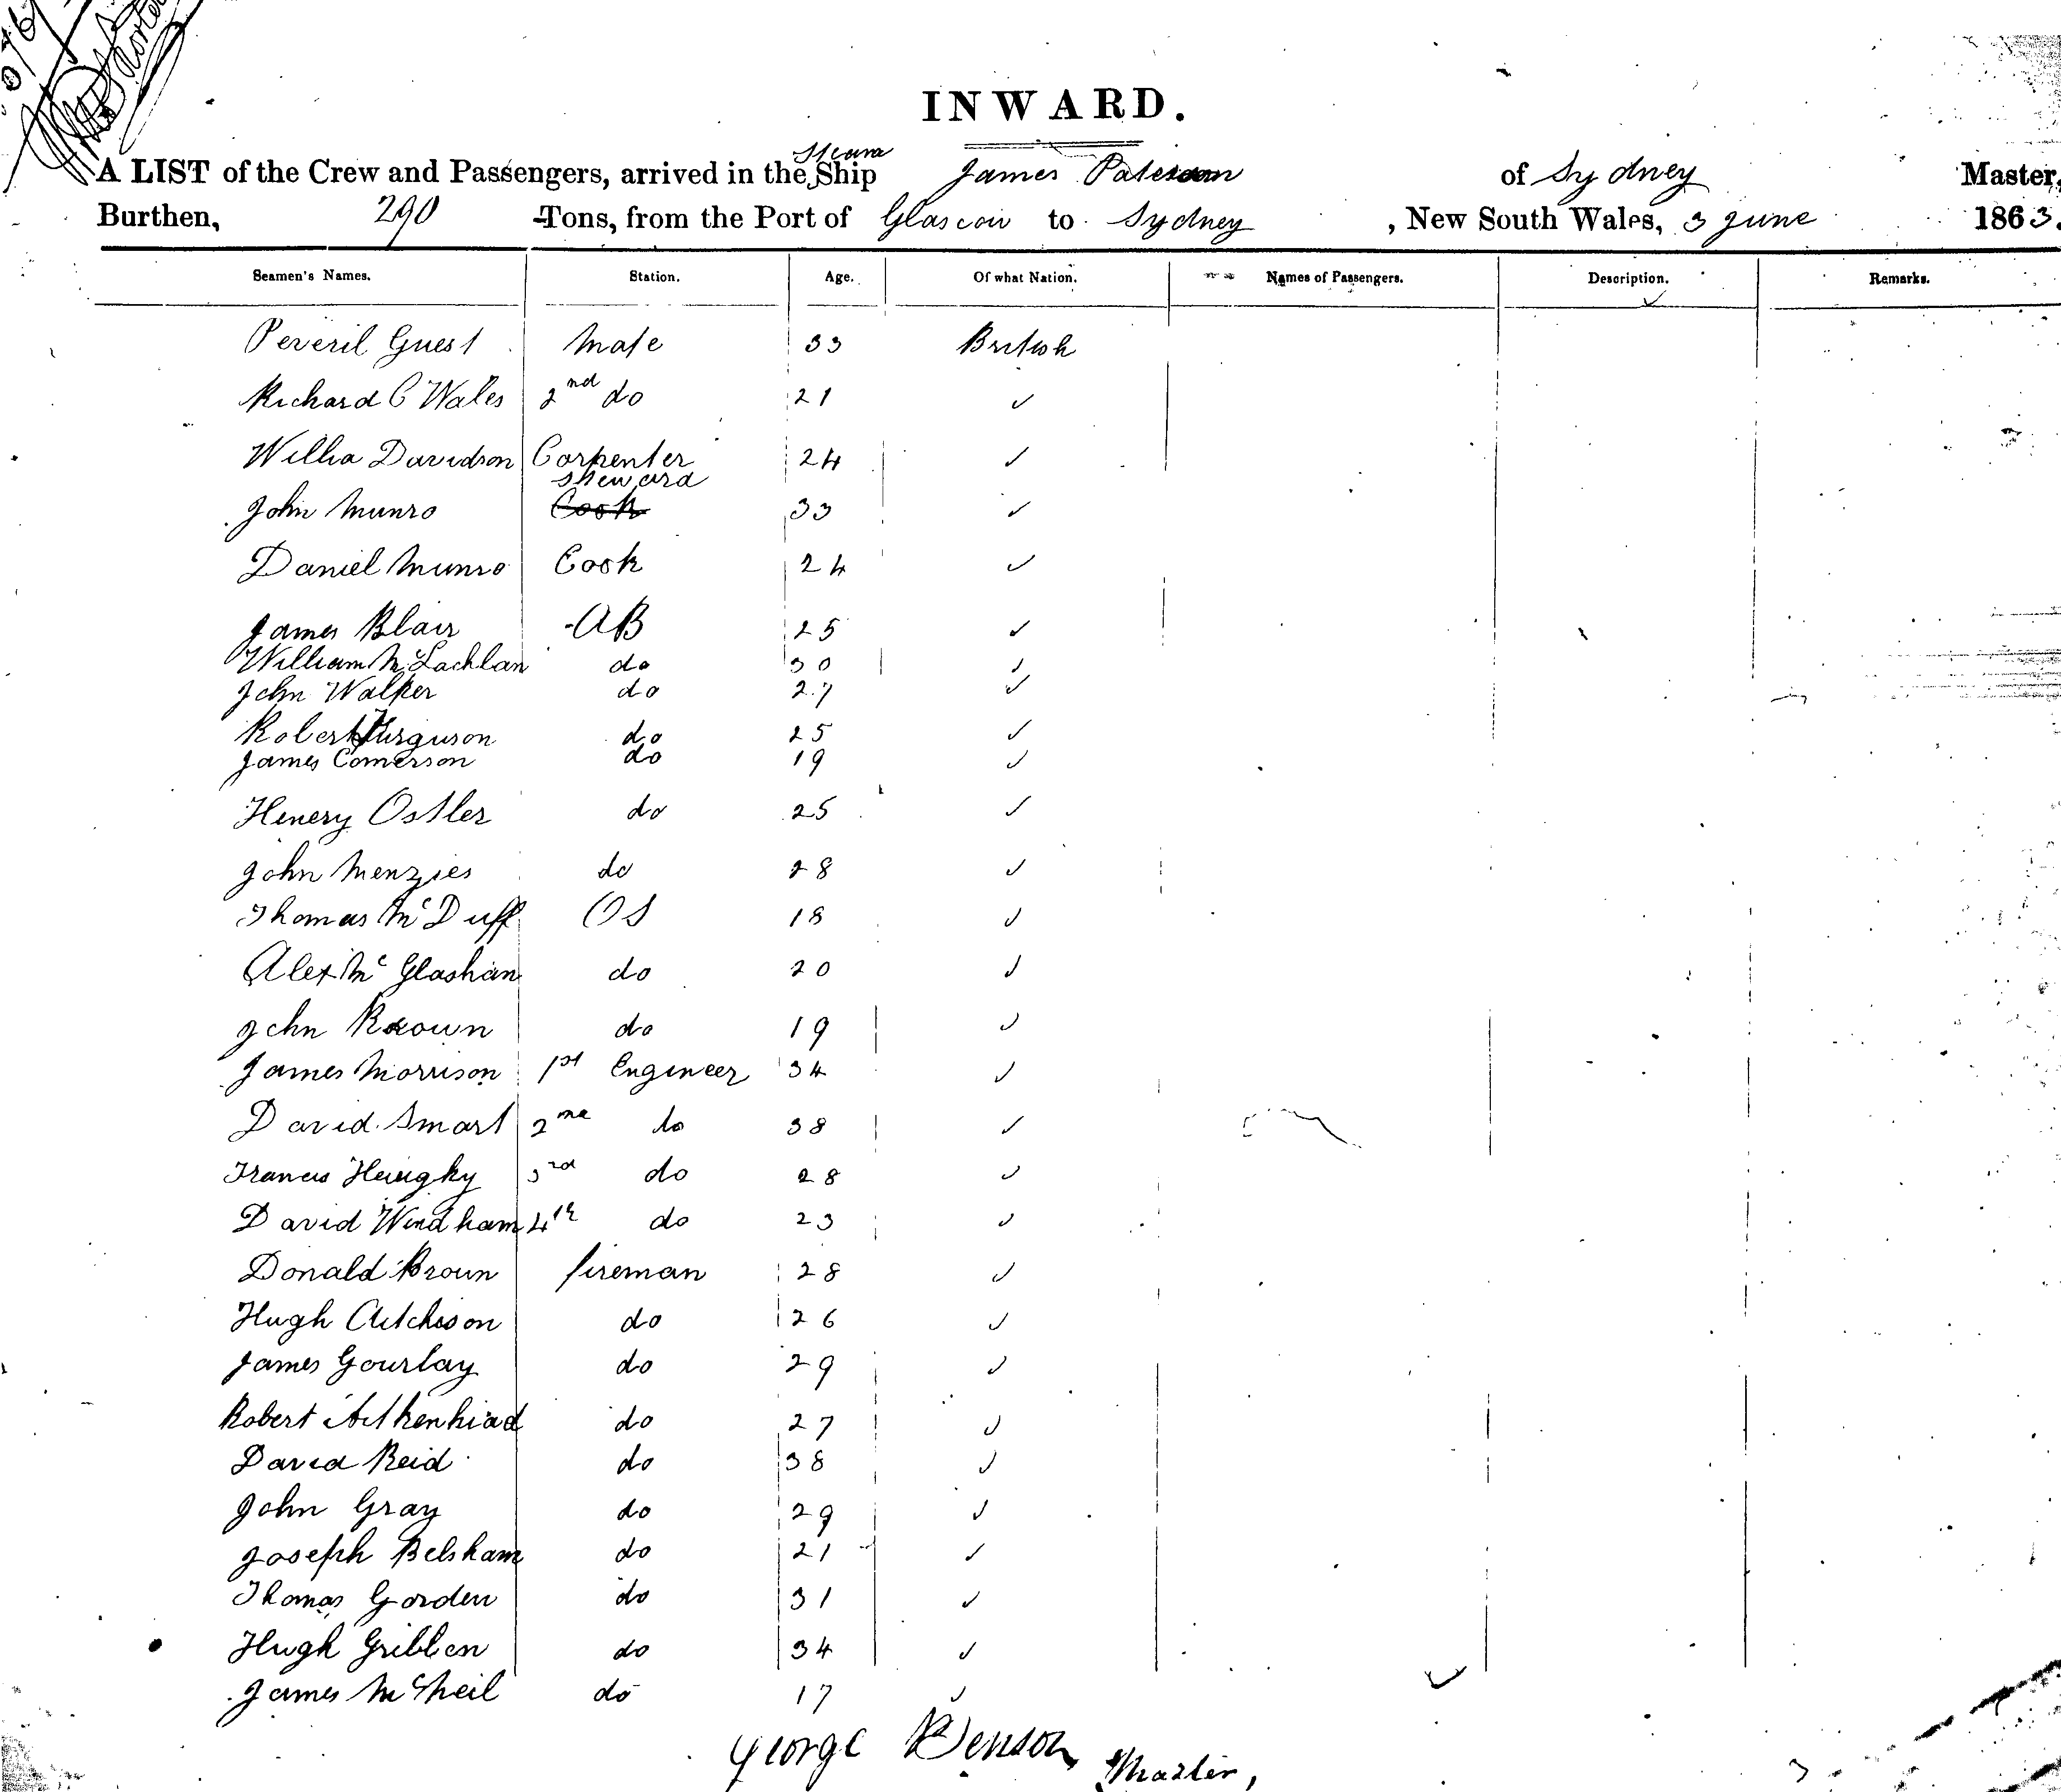 INWARD.
Steam
A LIST of the Crew and Passengers, arrived in the Ship James Paterson of Sydney Master,
Burthen, 290 Tons, from the Port of Glascow to Sydney, New South Wales, 3 June 1863.
Seamen's Names. Station. Age. Of what Nation. Names of Passengers. Description. Remarks.
Peveril Guest Mate 33 British
Richard C Wales 2nd do 21 ✓
Willia Davidson Carpenter 24 ✓
Steward
John Munro Cook 33 ✓
Daniel Munro Cook 24 ✓
James Blair AB 25 ✓
William McLachlan do 30 ✓
John Walker do 27 ✓
Robert Furguson do 25 ✓
James Comerson do 19 ✓
Henery Ostler do 25 ✓
John Menzies do 28 ✓
Thomas McDuff OS 18 ✓
Alex Mc Glashan do 20 ✓
John Brown do 19 ✓
James Morrison 1st Engineer 34 ✓
David Smart 2nd do 38 ✓
Francis do 28 ✓
3rd
David Windham 4th do 23 ✓
Donald Broun fireman 28 ✓
Hugh Aitchison do 26 ✓
James Gourlay do 29 ✓
Robert Aitkenhiad do 27 ✓
David Reid do 38 ✓
John Gray do 29 ✓
Joseph Belsham do 21 ✓
Thomas Gorden do 31 ✓
Hugh Gribben do 34 ✓
James McNeil do 17 ✓
George Benson
Master,